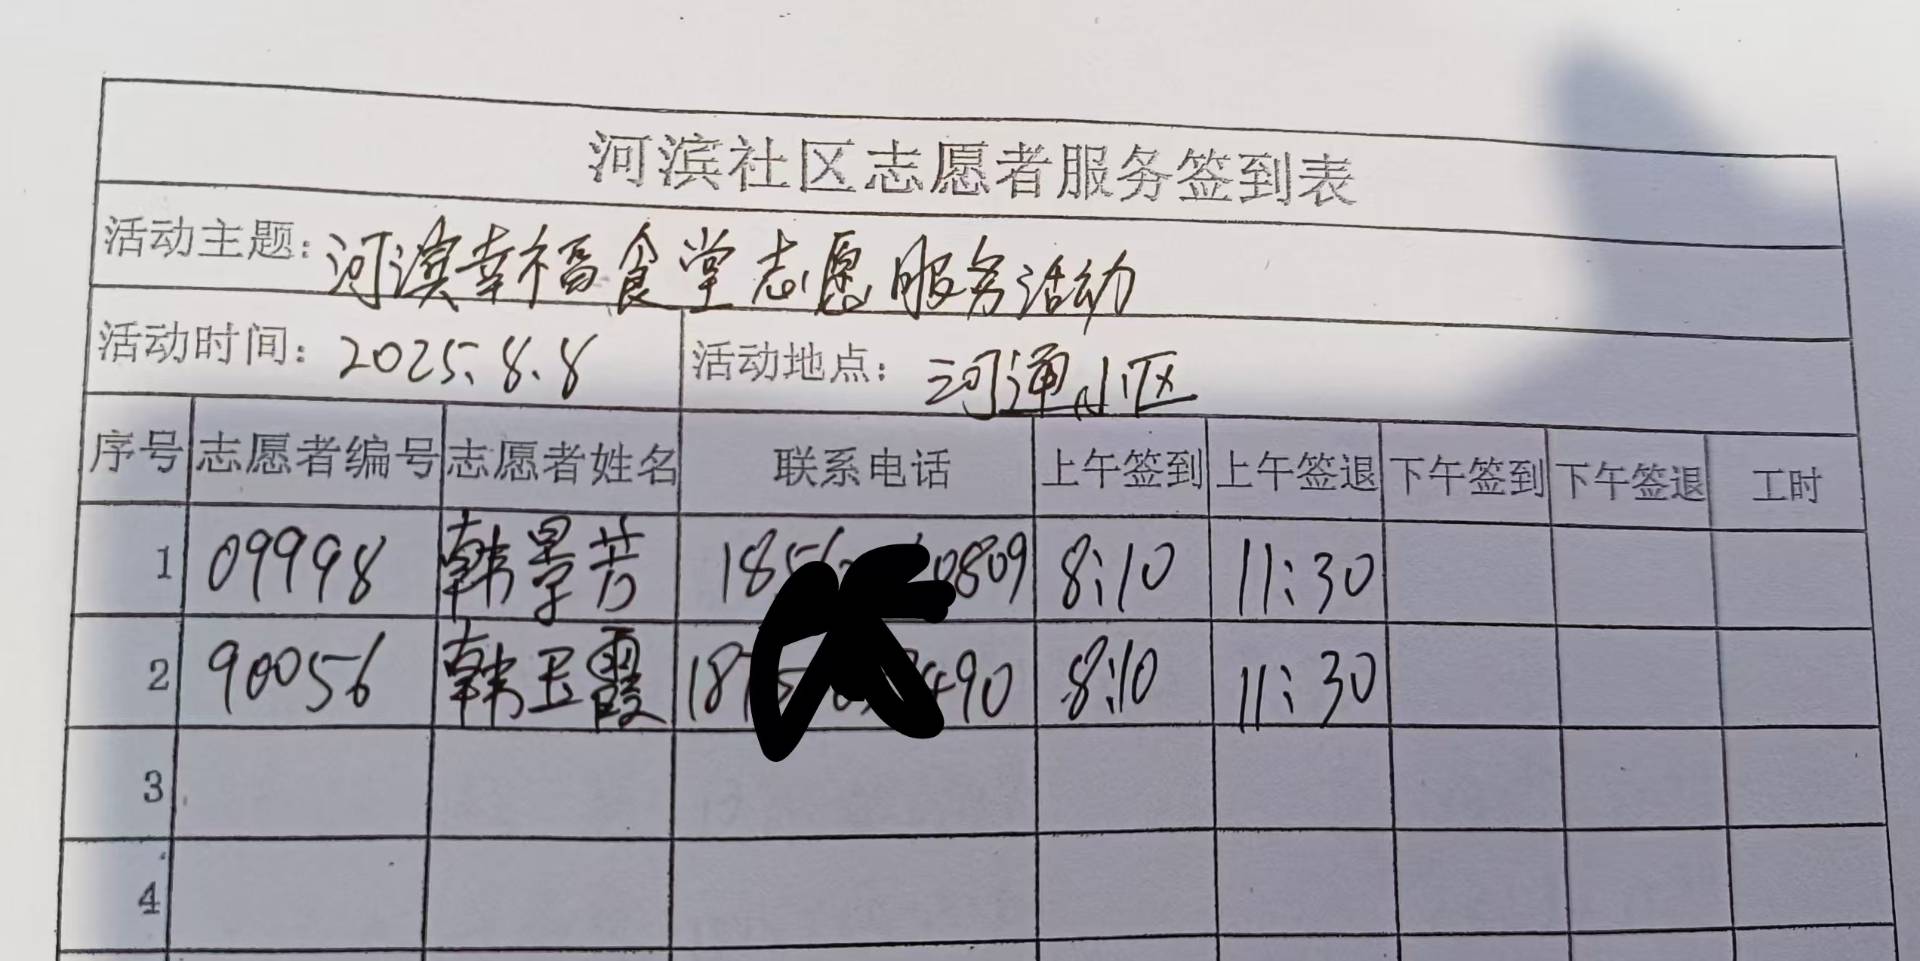 河滨社区志愿者服务签到表
活动主题：河滨幸福食堂志愿服务活动
活动时间：2025.8.8 活动地点：河通小区
序号 志愿者编号 志愿者姓名 联系电话 上午签到 上午签退 下午签到 下午签退 工时
1 09998 韩景芳 0809 8:10 11:30
2 90056 韩卫霞 490 8:10 11:30
3
4